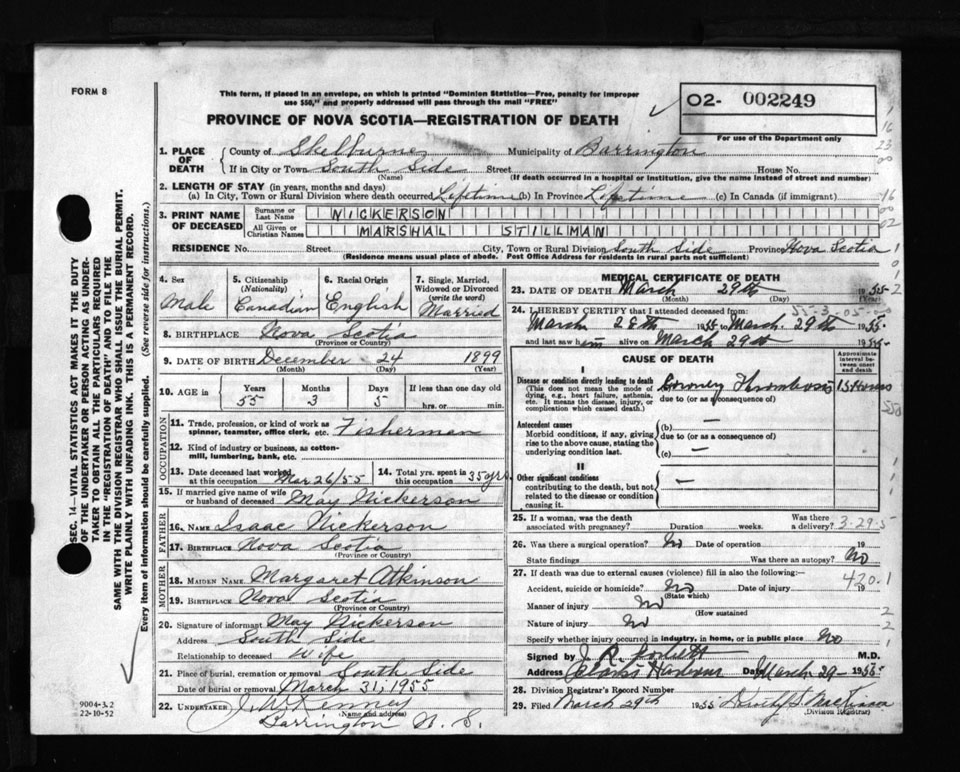 FORM 8
This form, if placed in an envelope, on which is printed "Dominion Statistics—Free, penalty for improper
use $50," and properly addressed will pass through the mail "FREE"
PROVINCE OF NOVA SCOTIA—REGISTRATION OF DEATH
02- 002249
For use of the Department only
1. PLACE OF DEATH
County of Shelburne Municipality of Barrington
If in City or Town South Side Street House No.
(Name) (If death occurred in a hospital or institution, give the name instead of street and number)
2. LENGTH OF STAY (in years, months and days)
(a) In City, Town or Rural Division where death occurred Lifetime (b) In Province Lifetime (c) In Canada (if immigrant)
3. PRINT NAME OF DECEASED
Surname or Last Name NICKERSON
All Given or Christian Names MARSHAL STILLMAN
RESIDENCE No. Street City, Town or Rural Division South Side Province Nova Scotia
(Residence means usual place of abode. Post Office Address for residents in rural parts not sufficient)
4. Sex Male
5. Citizenship (Nationality) Canadian
6. Racial Origin English
7. Single, Married, Widowed or Divorced (write the word) Married
8. BIRTHPLACE Nova Scotia
(Province or Country)
9. DATE OF BIRTH December 24 1899
(Month) (Day) (Year)
10. AGE in Years 55 Months 3 Days 5 If less than one day old
hrs. or min.
OCCUPATION
11. Trade, profession, or kind of work as spinner, teamster, office clerk, etc. Fisherman
12. Kind of industry or business, as cotton-mill, lumbering, bank, etc.
13. Date deceased last worked at this occupation Mar 26/55
14. Total yrs. spent in this occupation 35 yrs
15. If married give name of wife or husband of deceased May Nickerson
FATHER
16. NAME Isaac Nickerson
17. BIRTHPLACE Nova Scotia
(Province or Country)
MOTHER
18. MAIDEN NAME Margaret Atkinson
19. BIRTHPLACE Nova Scotia
(Province or Country)
20. Signature of informant May Nickerson
Address South Side
Relationship to deceased Wife
21. Place of burial, cremation or removal South Side
Date of burial or removal March 31, 1955
22. UNDERTAKER J. W. Kenney
(Name and address)
Barrington N. S.
MEDICAL CERTIFICATE OF DEATH
23. DATE OF DEATH March 29th 1955
(Month) (Day) (Year)
24. I HEREBY CERTIFY that I attended deceased from:
March 28th 1955 to March 29th 1955
and last saw him alive on March 29th 1955
CAUSE OF DEATH
Approximate interval between onset and death
I
Disease or condition directly leading to death
(This does not mean the mode of dying, e.g., heart failure, asthenia, etc. It means the disease, injury, or complication which caused death.)
(a) Coronary Thrombosis 15 Hours
due to (or as a consequence of)
Antecedent causes
Morbid conditions, if any, giving rise to the above cause, stating the underlying condition last.
(b) —
due to (or as a consequence of)
(c) —
II
Other significant conditions
contributing to the death, but not related to the disease or condition causing it. —
25. If a woman, was the death associated with pregnancy? Duration weeks. Was there a delivery? 3-29-5
26. Was there a surgical operation? No Date of operation 19
State findings Was there an autopsy? No
27. If death was due to external causes (violence) fill in also the following:—
420.1
Accident, suicide or homicide? No Date of injury 19
(State which)
Manner of injury No
(How sustained)
Nature of injury No
Specify whether injury occurred in industry, in home, or in public place No
Signed by M.D.
Address Clarks Harbour Date March 29 1955
28. Division Registrar's Record Number
29. Filed March 29th 1955
Division Registrar
SEC. 14—VITAL STATISTICS ACT MAKES IT THE DUTY
OF THE UNDERTAKER OR PERSON ACTING AS UNDER-
TAKER TO OBTAIN ALL THE PARTICULARS REQUIRED
IN THE "REGISTRATION OF DEATH" AND TO FILE THE
SAME WITH THE DIVISION REGISTRAR WHO SHALL ISSUE THE BURIAL PERMIT.
WRITE PLAINLY WITH UNFADING INK. THIS IS A PERMANENT RECORD.
Every item of information should be carefully supplied. (See reverse side for instructions.)
9004-3.2
22-10-52